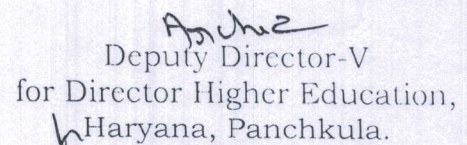 Deputy Director-V
for Director Higher Education,
Haryana, Panchkula.